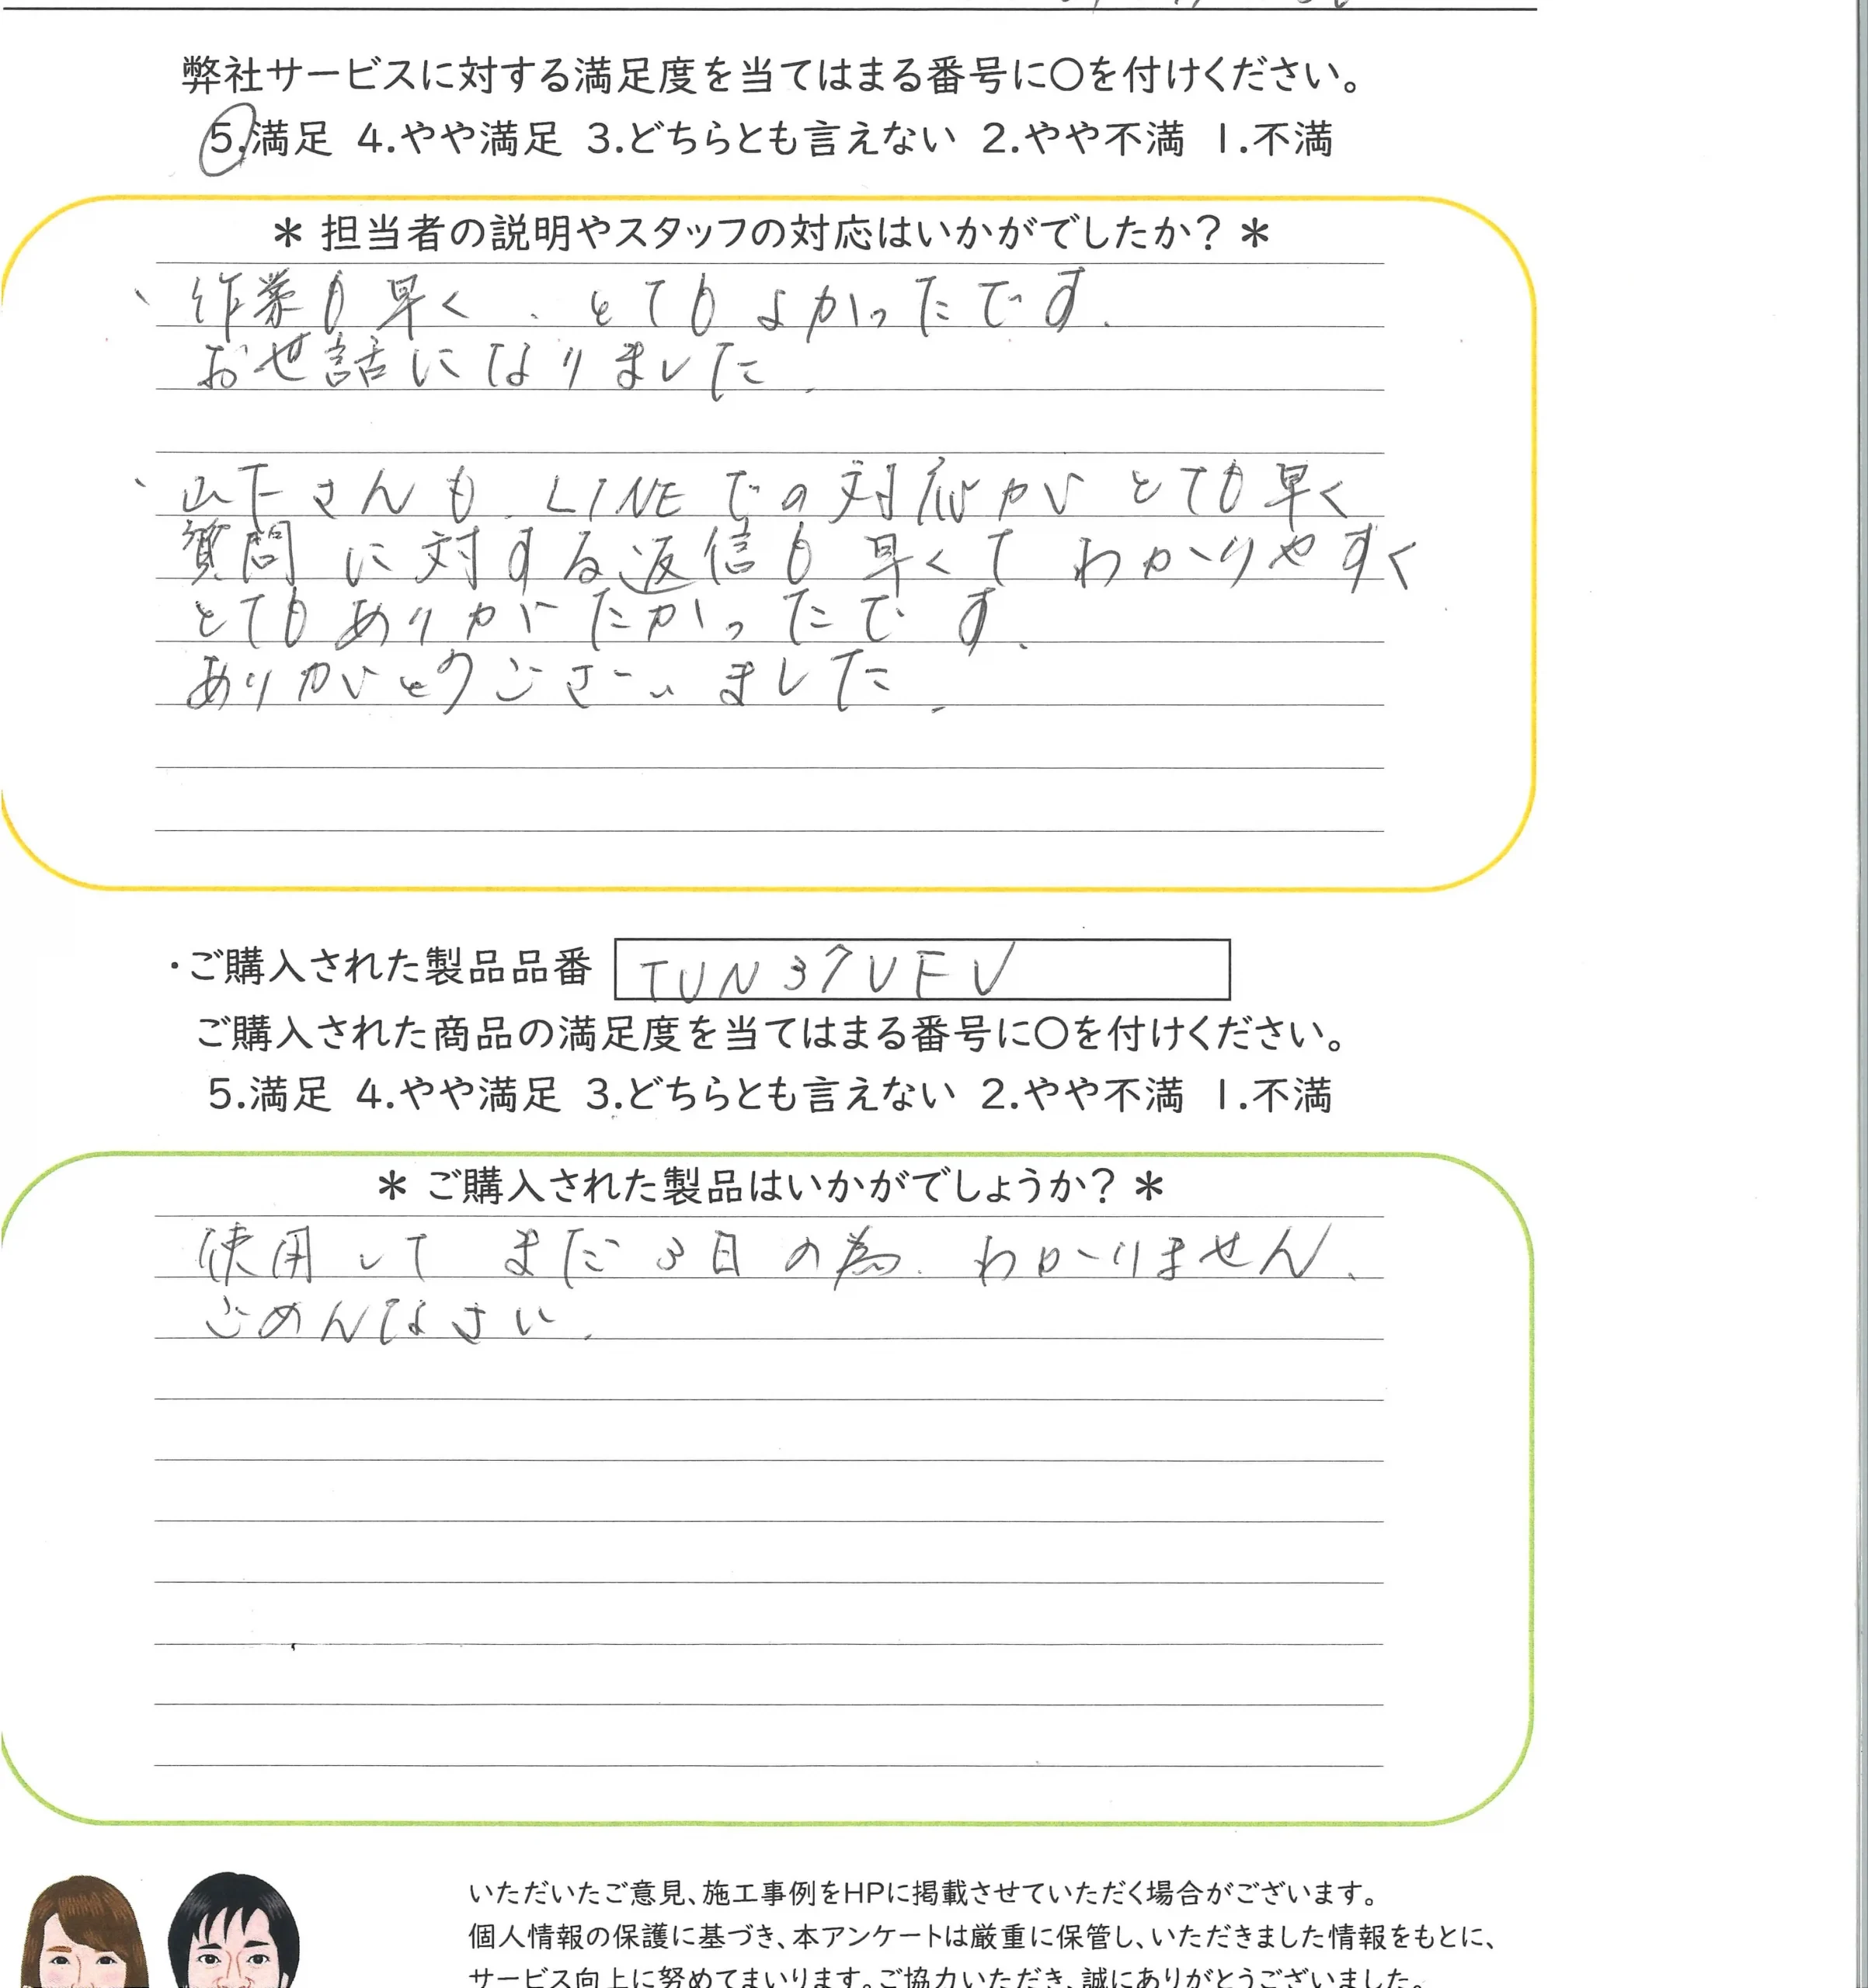 弊社サービスに対する満足度を当てはまる番号に〇を付けください。
5.満足 4.やや満足 3.どちらとも言えない 2.やや不満 1.不満
＊担当者の説明やスタッフの対応はいかがでしたか？＊
、作業も早く、とてもよかったです。
お世話になりました。
、山下さんも、LINEでの対応がとても早く
質問に対する返信も早くてわかりやすく
とてもありがたかったです。
ありがとうございました。
・ご購入された製品品番 TUN37UFV
ご購入された商品の満足度を当てはまる番号に〇を付けください。
5.満足 4.やや満足 3.どちらとも言えない 2.やや不満 1.不満
＊ご購入された製品はいかがでしょうか？＊
使用してまだ3日の為、わかりません。
ごめんなさい。
いただいたご意見、施工事例をHPに掲載させていただく場合がございます。
個人情報の保護に基づき、本アンケートは厳重に保管し、いただきました情報をもとに、
サービス向上に努めてまいります。ご協力いただき、誠にありがとうございました。